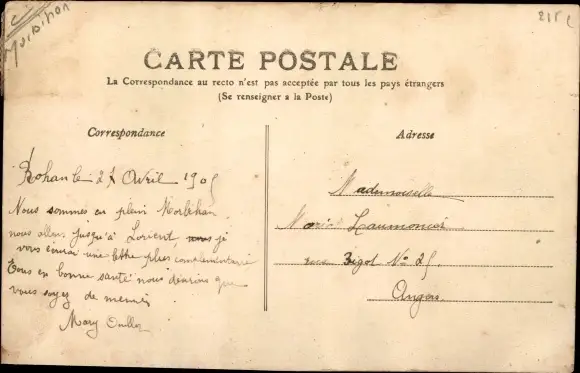 Morbihan
CARTE POSTALE
La Correspondance au recto n'est pas acceptée par tous les pays étrangers
(Se renseigner a la Poste)
Correspondance
Adresse
Rohan le 27 Avril 1905
Nous sommes en plein Morbihan
nous allons jusqu'à Lorient, je
vous écrirai une lettre plus complémentaire
Tous en bonne santé nous désirons que
vous soyez de memes
Mary
Mademoiselle
Maria Laumonier
rue Bigot No 25.
Angers